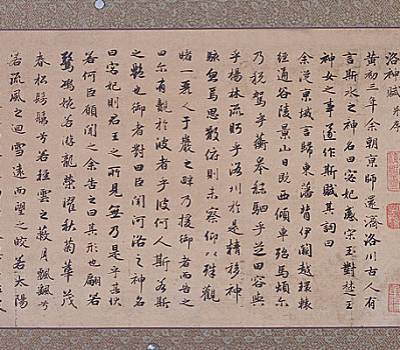 洛神賦 并序
黃初三年余朝京師還濟洛川古人有
言斯水之神名曰宓妃感宋玉對楚王
神女之事遂作斯賦其詞曰
余從京域言歸東藩背伊闕越轘轅
經通谷陵景山日既西傾車殆馬煩爾
乃稅駕乎蘅皋秣駟乎芝田容與
乎楊林流眄乎洛川於是精移神
駭忽焉思散俯則未察仰以殊觀
睹一麗人于巖之畔乃援御者而告之
曰爾有覿於彼者乎彼何人斯若斯
之艷也御者對曰臣聞河洛之神名
曰宓妃則君王之所見無乃是乎其狀
若何臣願聞之余告之曰其形也翩若
驚鴻婉若游龍榮曜秋菊華茂
春松髣髴兮若輕雲之蔽月飄颻兮
若流風之迴雪遠而望之皎若太陽